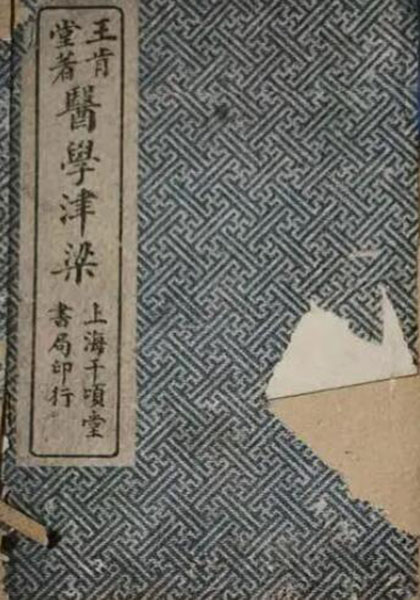 王肯
堂著
醫學津梁
上海千頃堂
書局印行